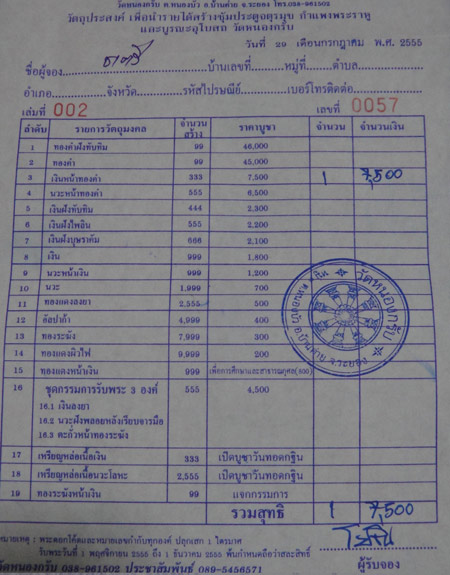 วัดหนองกรับ ต.หนองบัว อ.บ้านค่าย จ.ระยอง โทร.038-961502
วัตถุประสงค์ เพื่อนำรายได้สร้างซุ้มประตูจตุรมุข กำแพงพระราหู
และบูรณะอุโบสถ วัดหนองกรับ
วันที่ 29 เดือนกรกฎาคม พ.ศ. 2555
ชื่อผู้จอง บ้านเลขที่ หมู่ที่ ตำบล
อำเภอ จังหวัด รหัสไปรษณีย์ เบอร์โทรติดต่อ
เล่มที่ 002 เลขที่ 0057
ลำดับ รายการวัตถุมงคล จำนวนสร้าง ราคาบูชา จำนวน จำนวนเงิน
1 ทองคำฝังทับทิม 99 46,000
2 ทองคำ 99 45,000
3 เงินหน้าทองคำ 333 7,500 1 7,500
4 นวะหน้าทองคำ 555 6,500
5 เงินฝังทับทิม 444 2,300
6 เงินฝังไพลิน 555 2,200
7 เงินฝังบุษราคัม 666 2,100
8 เงิน 999 1,800
9 นวะหน้าเงิน 999 1,200
10 นวะ 1,999 700
11 ทองแดงลงยา 2,555 500
12 อัลปาก้า 4,999 400
13 ทองระฆัง 7,999 300
14 ทองแดงผิวไฟ 9,999 200
15 ทองแดงหน้าเงิน 999 เพื่อการศึกษาและสาธารณกุศล(600)
16 ชุดกรรมการรับพระ 3 องค์ 555 4,500
16.1 เงินลงยา
16.2 นวะฝังพลอยหลังเรียบจารมือ
16.3 ตะกั่วหน้าทองระฆัง
17 เหรียญหล่อเนื้อเงิน 333 เปิดบูชาวันทอดกฐิน
18 เหรียญหล่อเนื้อนวะโลหะ 2,555 เปิดบูชาวันทอดกฐิน
19 ทองระฆังหน้าเงิน 99 แจกกรรมการ
รวมสุทธิ 1 7,500
หมายเหตุ : พระตอกโค๊ดและหมายเลขกำกับทุกองค์ ปลุกเสก 1 ไตรมาศ
รับพระวันที่ 1 พฤศจิกายน 2555 ถึง 1 ธันวาคม 2555 พ้นกำหนดถือว่าสละสิทธิ์
วัดหนองกรับ 038-961502 ประชาสัมพันธ์ 089-5456571 ผู้รับจอง
วัดหนองกรับ
ต.หนองบัว อ.บ้านค่าย จ.ระยอง